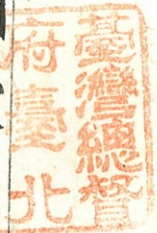 臺灣總督
府臺北